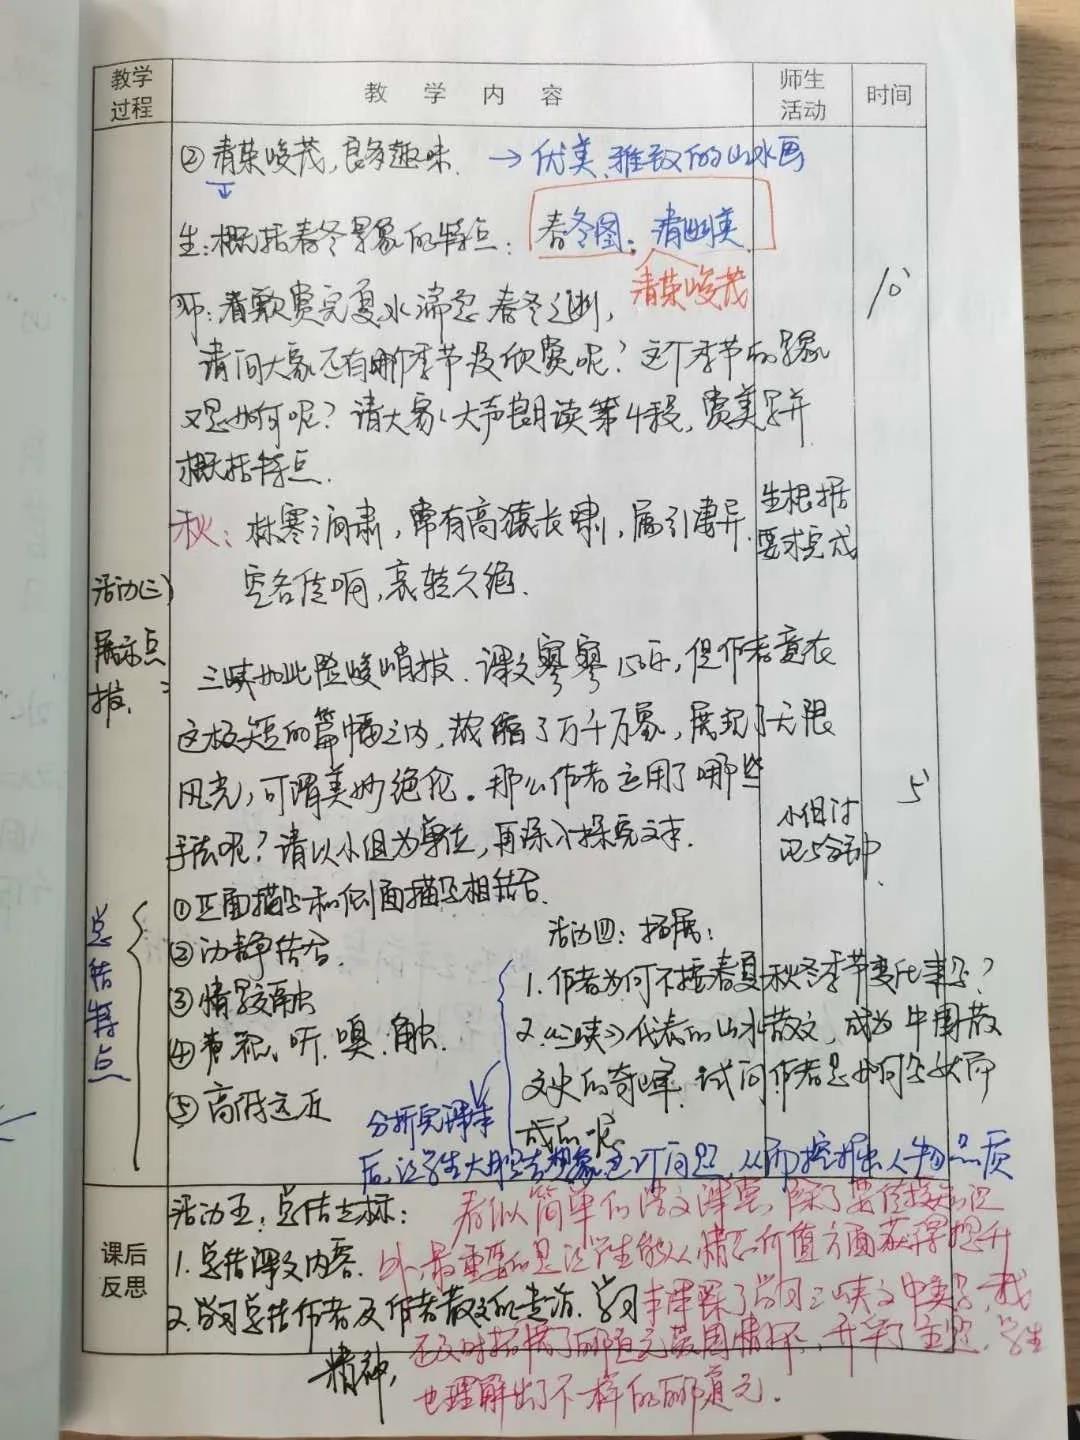 教学过程
教 学 内 容
师生活动
时间
②清荣峻茂,良多趣味. →优美、雅致的山水画
生:概括春冬景象的特点: 春冬图:清幽美
清荣峻茂
师:看歌赏完夏水湍急春冬之
请问大家还有哪个季节没欣赏呢?这个季节的景象
又是如何呢?请大家大声朗读第4段,赏美景并
概括特点.
10'
秋:林寒涧肃,常有高猿长啸,属引凄异.
空谷传响,哀转久绝.
生根据
要求完成
活动(三)
展示点
拨:
三峡如此险峻峭拔.课文寥寥150字,但作者竟在
这极短的篇幅之内,浓缩了万千万象,展现了无限
风光,可谓美妙绝伦。那么作者运用了哪些
手法呢?请以小组为单位,再深入探究文本.
小组讨
论5分钟.
5'
总结特点
①正面描写和侧面描写相结合.
②动静结合.
③情景交融
④着视、听、嗅、触.
⑤高低远近
活动四:拓展:
1.作者为何不按春夏秋冬季节变化来写?
2.《三峡》代表的山水散文,成为中国散
文史的奇峰.试问作者是如何写
成的呢
分析完课本
后,让学生大胆去想象,探讨问题,从而挖掘出人物品质
课后反思
活动五:总结达标:
1.总结课文内容.
2.学习总结作者及作者散文的造诣.学习
精神.
看似简单的语文课堂,除了要传授知识
外,最重要的是让学生能从情感价值方面获得提升
本课除了学习三峡文中美景,我
还及时拓展了郦道元爱国情怀,升华了主题.学生
也理解出了不一样的郦道元.